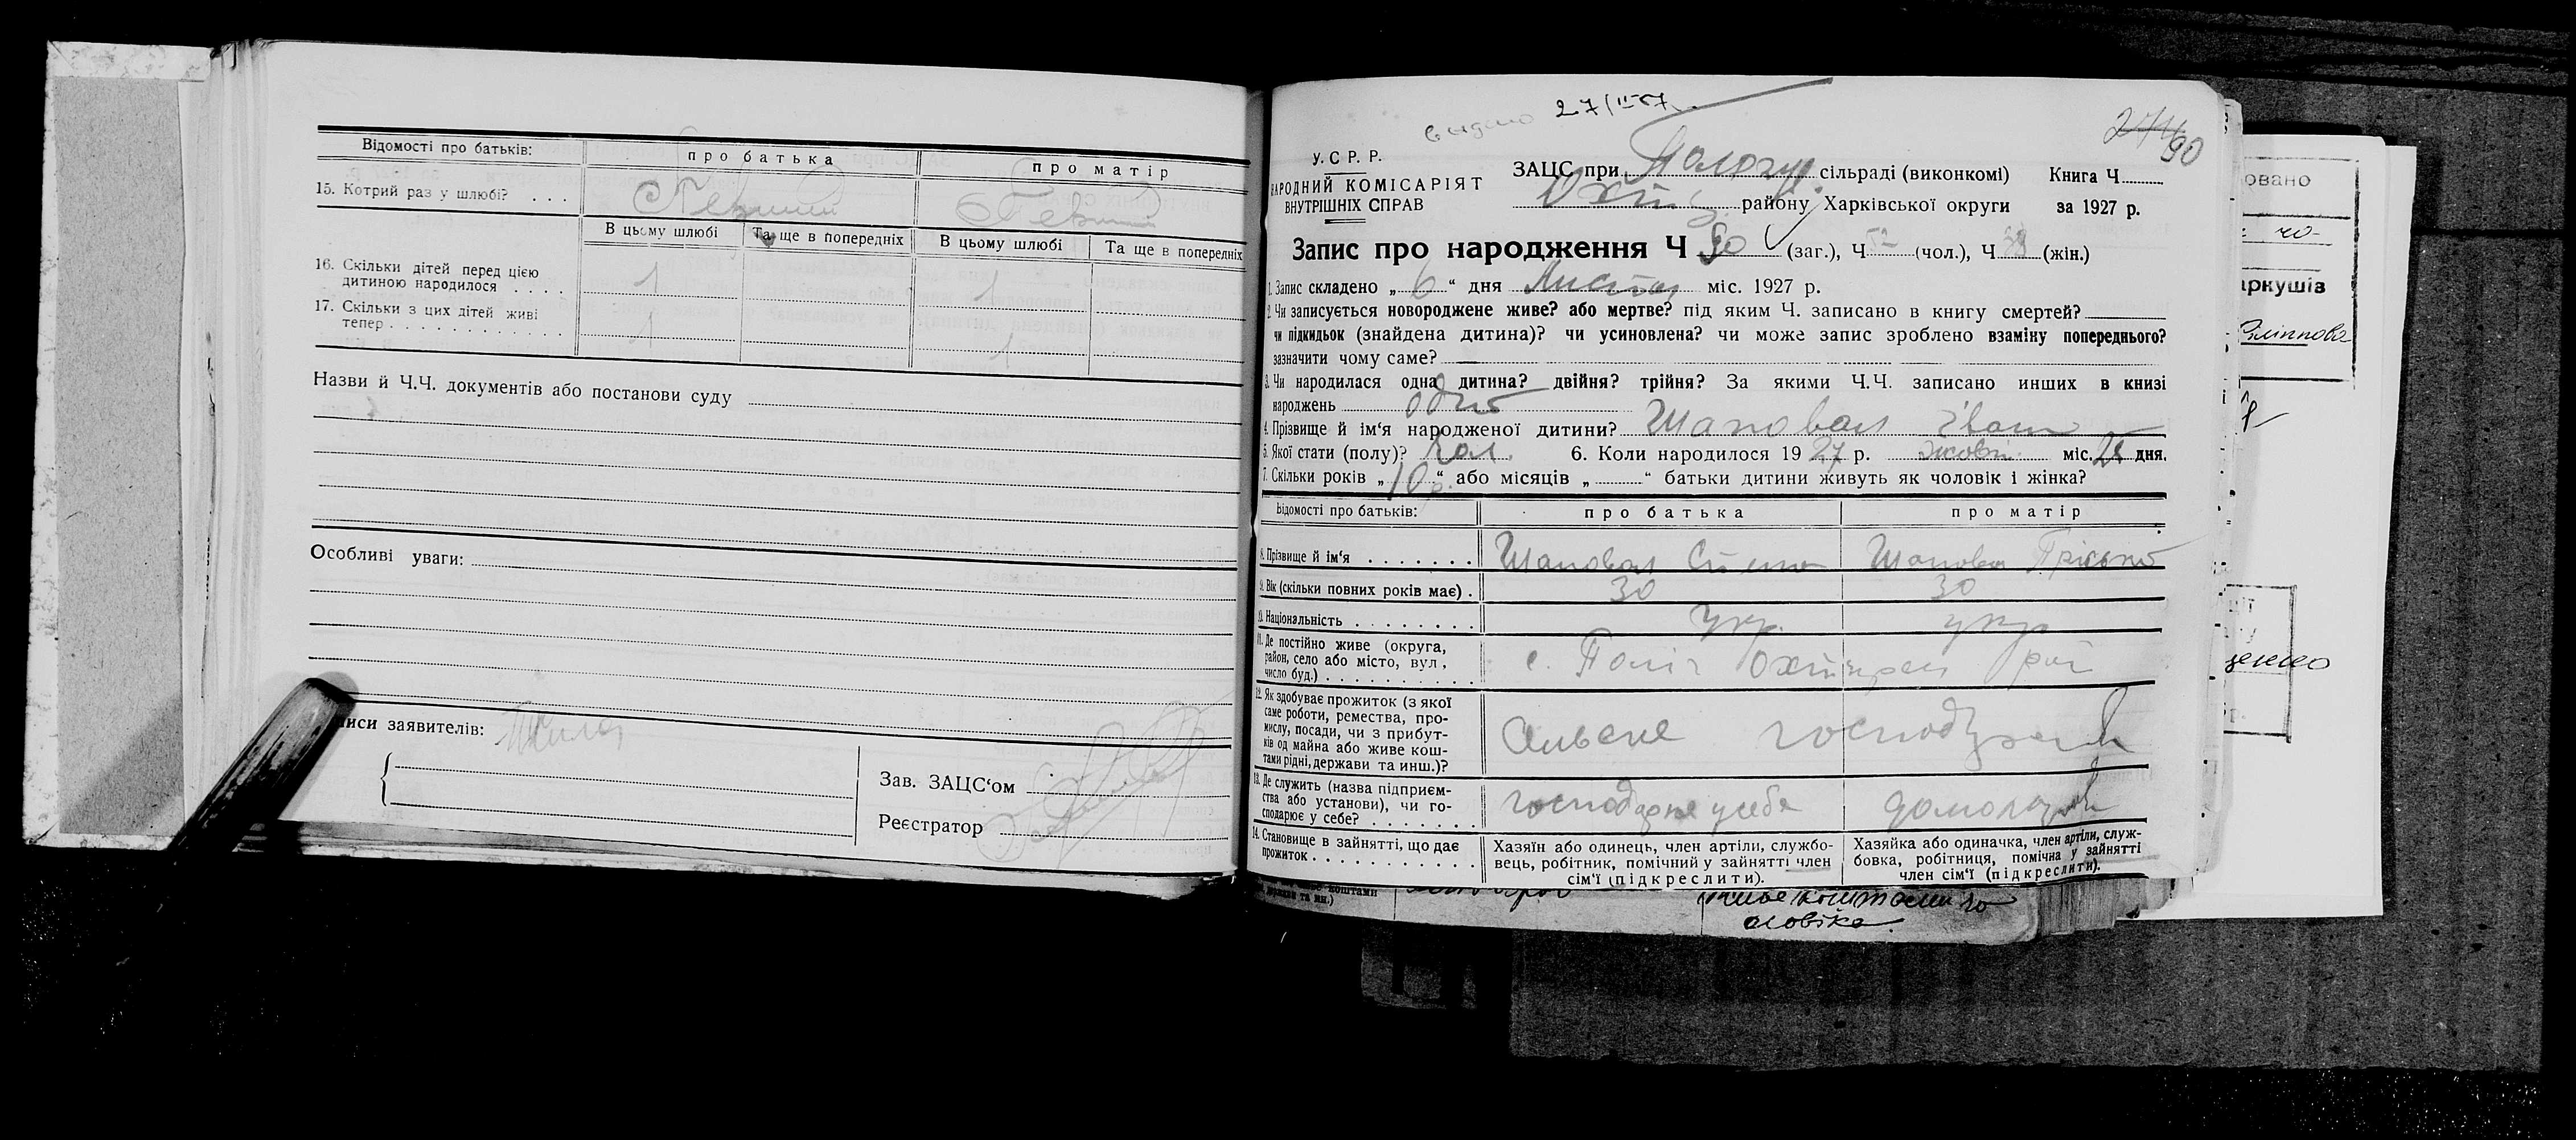 Відомості про батьків: про батька про матір
15. Котрий раз у шлюбі? . . . Первий Первий
В цьому шлюбі Та ще в попередніх В цьому шлюбі Та ще в попередніх
16. Скільки дітей перед цією
дитиною народилося . . . . 1 1
17. Скільки з цих дітей живі
тепер . . . . . . . . . . . . . 1 1
Назви й Ч.Ч. документів або постанови суду
Особливі уваги:
писи заявителів:
Зав. ЗАЦС'ом
Реєстратор
видано 27/II-57
274 90
У. С Р. Р.
НАРОДНИЙ КОМІСАРІЯТ
ВНУТРІШНІХ СПРАВ
ЗАЦС при сільраді (виконкомі) Книга Ч
Охт району Харківської округи за 1927 р.
Запис про народження Ч 90 (заг.), Ч 52 (чол.), Ч 38 (жін.)
1. Запис складено „ 6 “ дня Листоп міс. 1927 р.
2. Чи записується новороджене живе? або мертве? під яким Ч. записано в книгу смертей?
чи підкидьок (знайдена дитина)? чи усиновлена? чи може запис зроблено взаміну попереднього?
зазначити чому саме?
3. Чи народилася одна дитина? двійня? трійня? За якими Ч.Ч. записано инших в книзі
народжень одно
4. Прізвище й ім'я народженої дитини? Шаповал Іван
5. Якої стати (полу)? Чол. 6. Коли народилося 1927 р. Жовт. міс. дня.
7. Скільки років „ 10 р. “ або місяців „ “ батьки дитини живуть як чоловік і жінка?
Відомості про батьків: про батька про матір
8. Прізвище й ім'я . . . . . . . Шаповал Шаповал
9. Вік (скільки повних років має) . 30 30
10. Національність . . . . . . . . Укр. укр
11. Де постійно живе (округа,
район, село або місто, вул,
число буд.) . . . . . . . . . . с. Охтирськ рай
12. Як здобуває прожиток (з якої
саме роботи, ремества, про-
мислу, посади, чи з прибут-
ків од майна або живе кош-
тами рідні, держави та инш.)?
Сільське господар
13. Де служить (назва підприєм-
ства або установи), чи го-
сподарює у себе? . . . . . . .
господарює у себе
14. Становище в зайнятті, що дає
прожиток . . . . . . . . . . .
Хазяїн або одинець, член артіли, службо-
вець, робітник, помічний у зайнятті член
сім'ї (підкреслити).
Хазяйка або одиначка, член артіли, служ-
бовка, робітниця, помічна у зайнятті
член сім'ї (підкреслити).
коштами
держави та ин.)
живе коштами чо
ловіка.
овано
аркушів